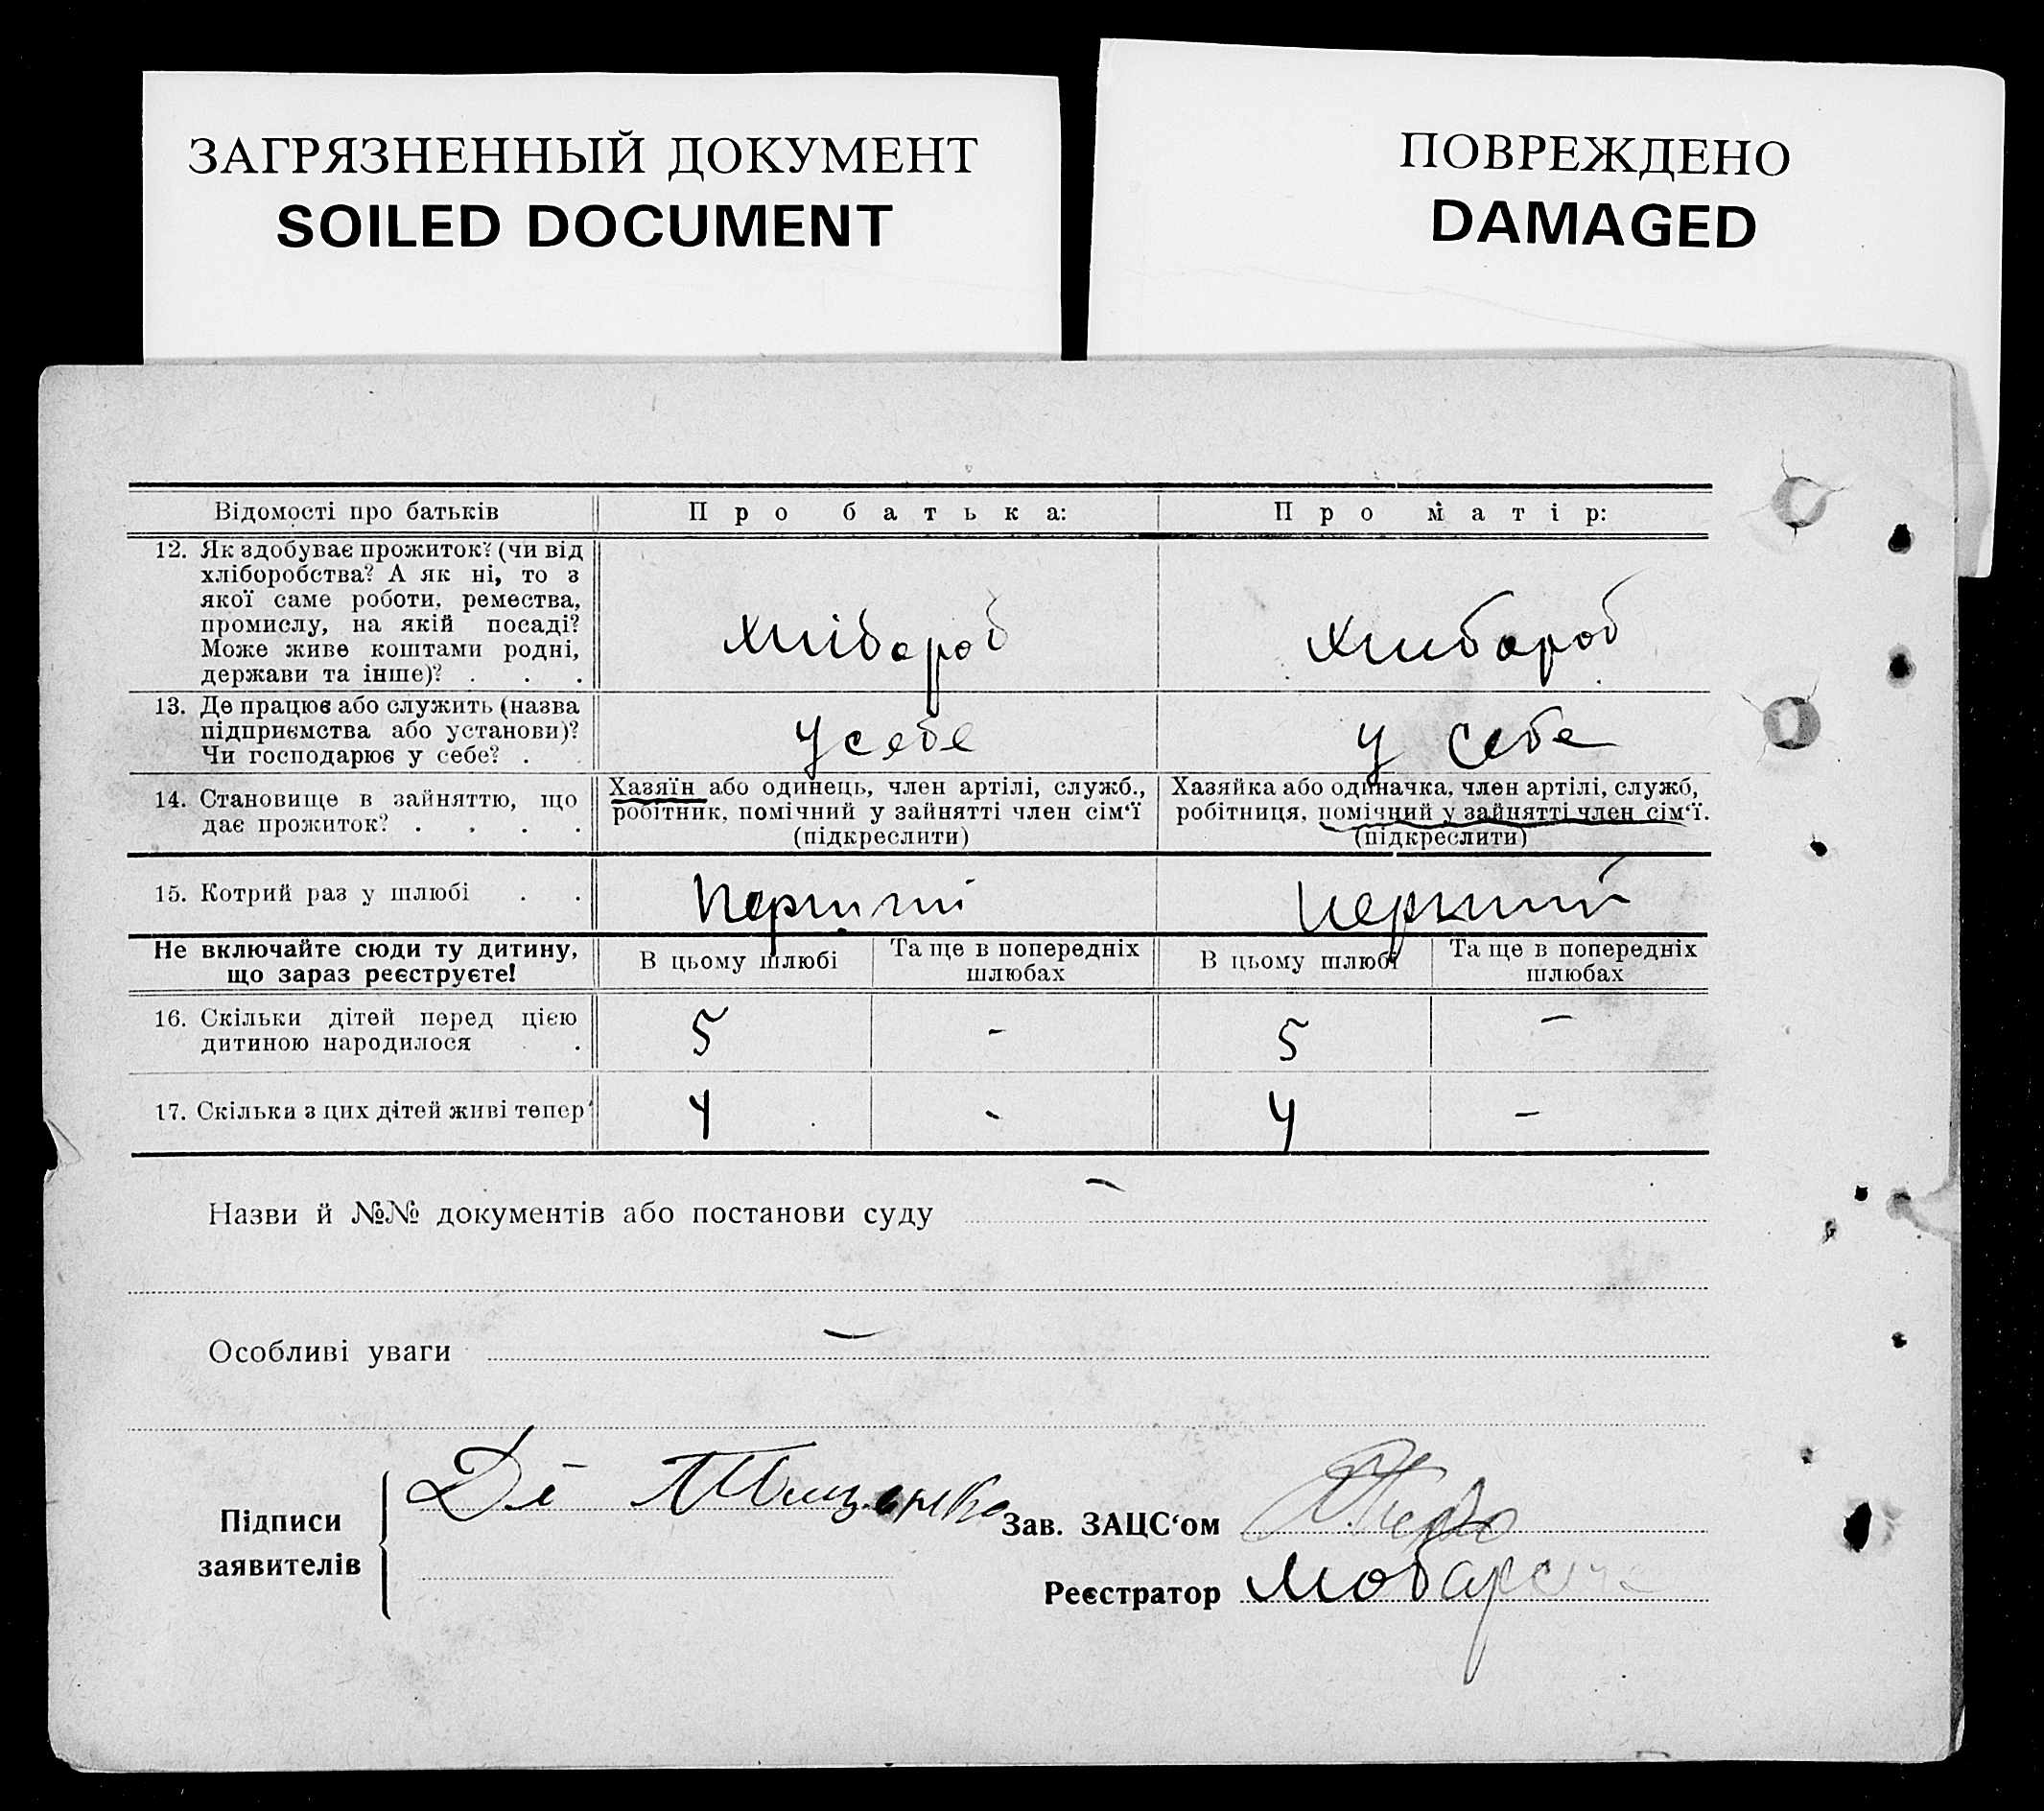 ЗАГРЯЗНЕННЫЙ ДОКУМЕНТ
SOILED DOCUMENT
ПОВРЕЖДЕНО
DAMAGED
Відомості про батьків
Про батька:
Про матір:
12. Як здобуває прожиток? (чи від
хліборобства? А як ні, то з
якої саме роботи, ремества,
промислу, на якій посаді?
Може живе коштами родні,
держави та інше)? . . .
хлібороб
хлибороб
13. Де працює або служить (назва
підприємства або установи)?
Чи господарює у себе? .
у себе
у себе
14. Становище в зайняттю, що
дає прожиток? . . . .
Хазяїн або одинець, член артілі, служб.,
робітник, помічний у зайнятті член сім‘ї
(підкреслити)
Хазяйка або одиначка, член артілі, служб,
робітниця, помічний у зайнятті член сім‘ї.
(підкреслити)
15. Котрий раз у шлюбі . .
перший
перший
Не включайте сюди ту дитину,
що зараз реєструєте!
В цьому шлюбі
Та ще в попередніх
шлюбах
В цьому шлюбі
Та ще в попередніх
шлюбах
16. Скільки дітей перед цією
дитиною народилося .
5
-
5
-
17. Скілька з цих дітей живі тепер
4
-
4
-
Назви й №№ документів або постанови суду -
Особливі уваги -
Підписи
заявителів
Зав. ЗАЦС‘ом
Реєстратор